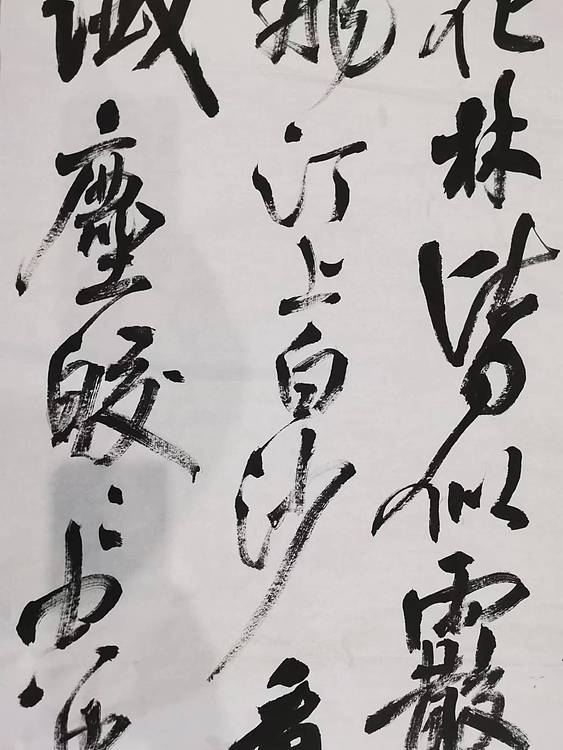 花林皆似霰
飛汀上白沙看
纖塵皎々